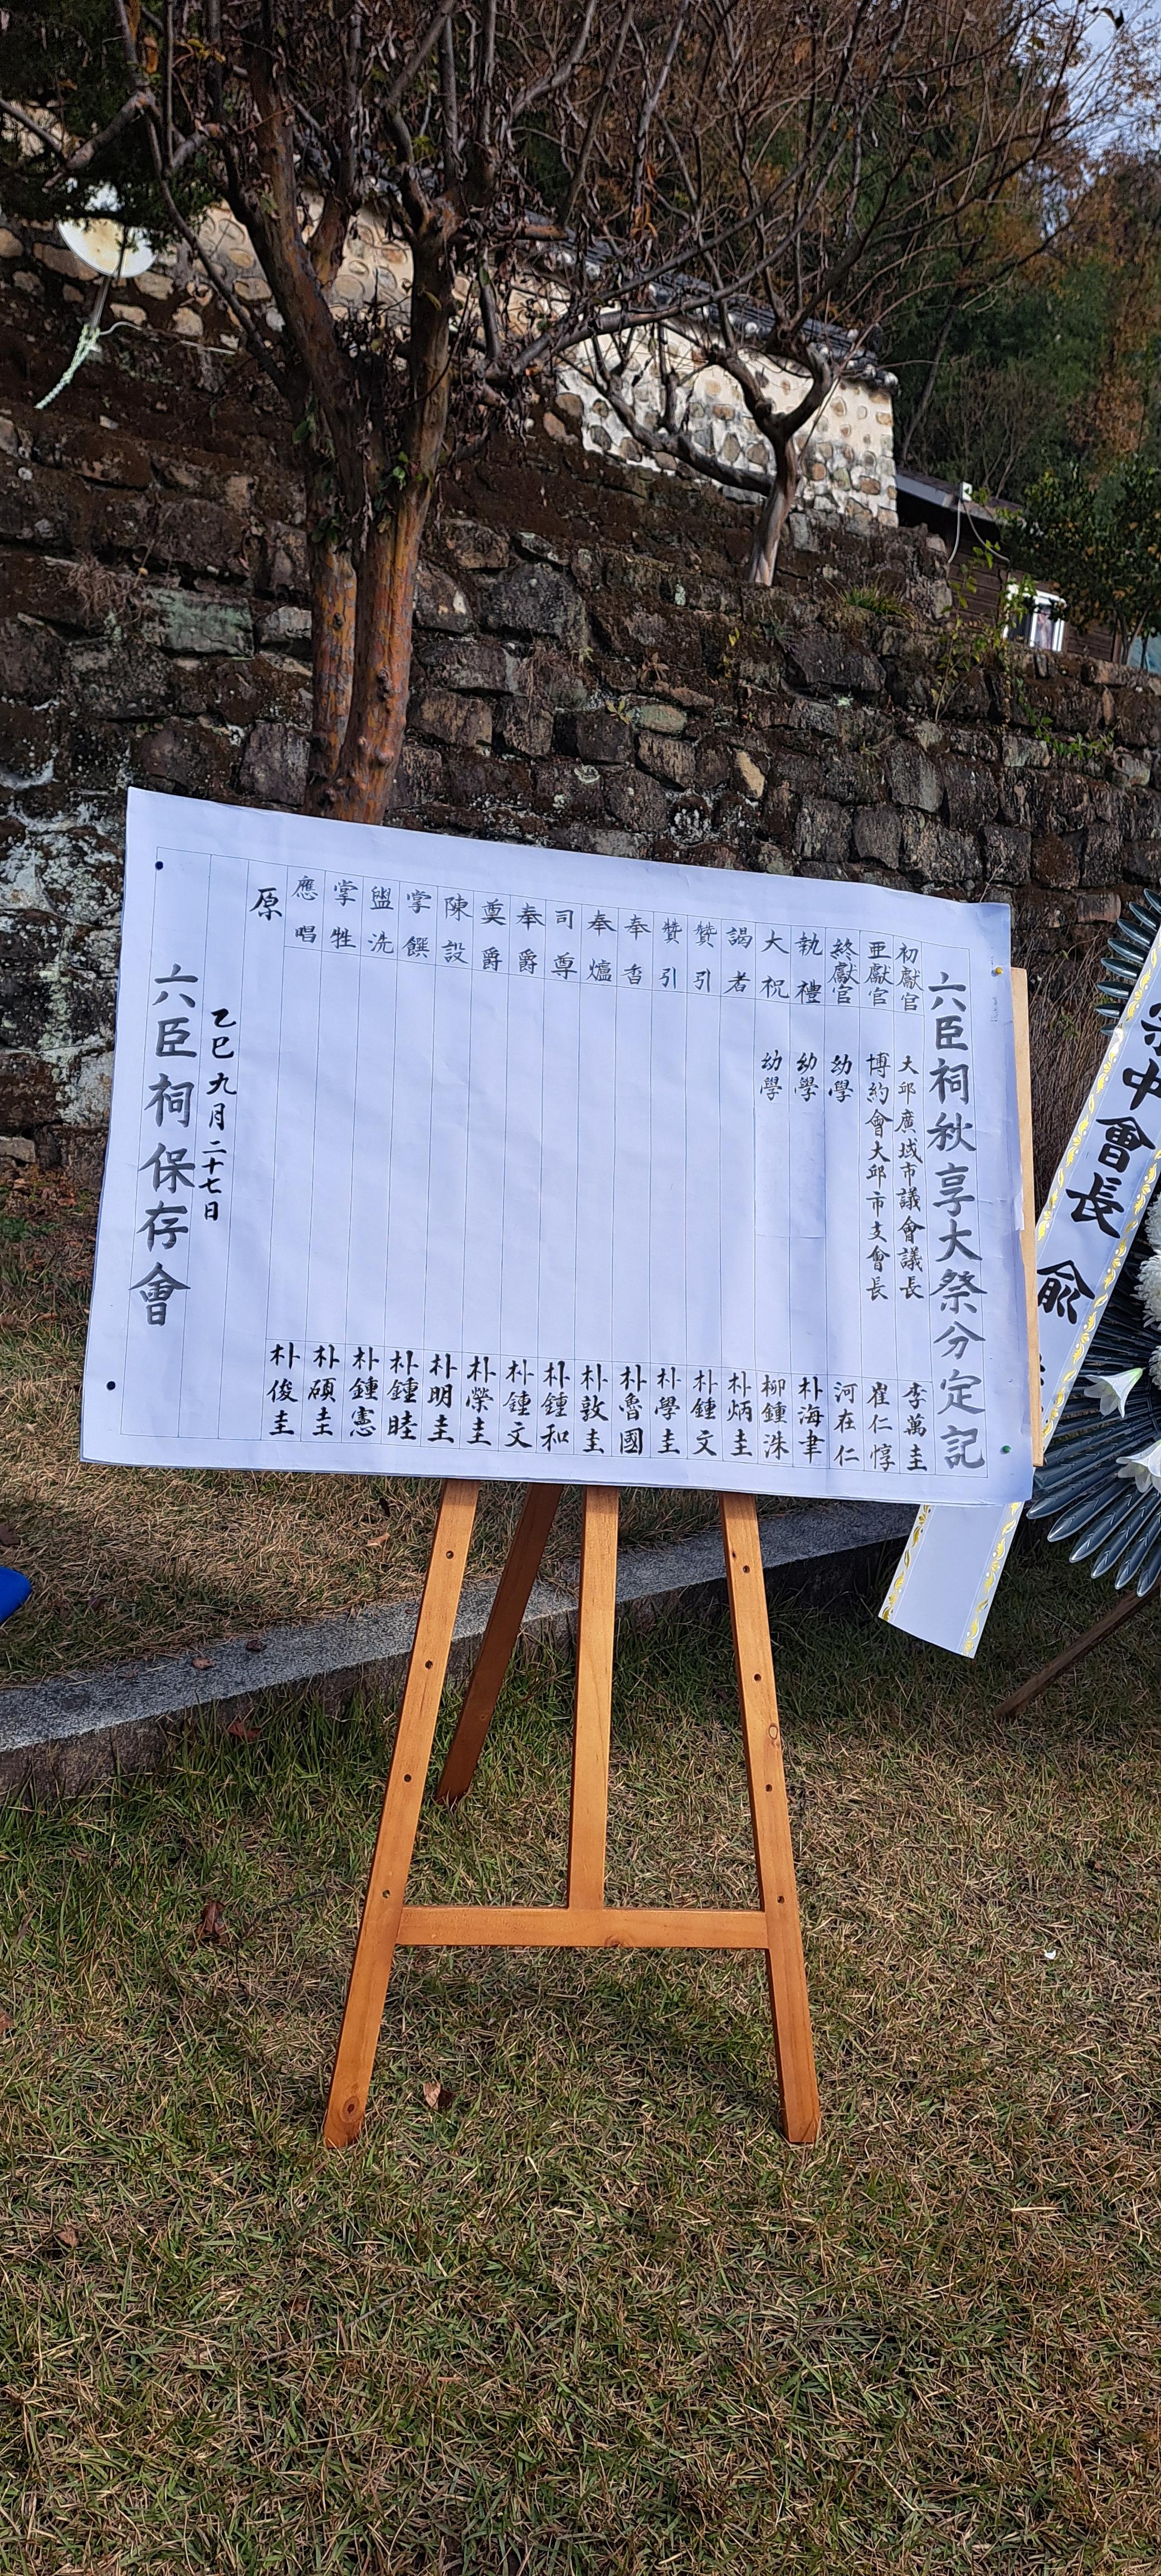 六臣祠秋享大祭分定記
初獻官 大邱廣域市議會議長 李萬圭
亞獻官 博約會大邱市支會長 崔仁惇
終獻官 幼學 河在仁
執禮 幼學 朴海聿
大祝 幼學 柳鍾洙
謁者 朴炳圭
贊引 朴鍾文
贊引 朴學圭
奉香 朴魯國
奉爐 朴敦圭
司尊 朴鍾和
奉爵 朴鍾文
奠爵 朴榮圭
陳設 朴明圭
掌饌 朴鍾睦
盥洗 朴鍾憲
掌牲 朴碩圭
應唱 朴俊圭
原
乙巳九月二十七日
六臣祠保存會
宗中會長 兪